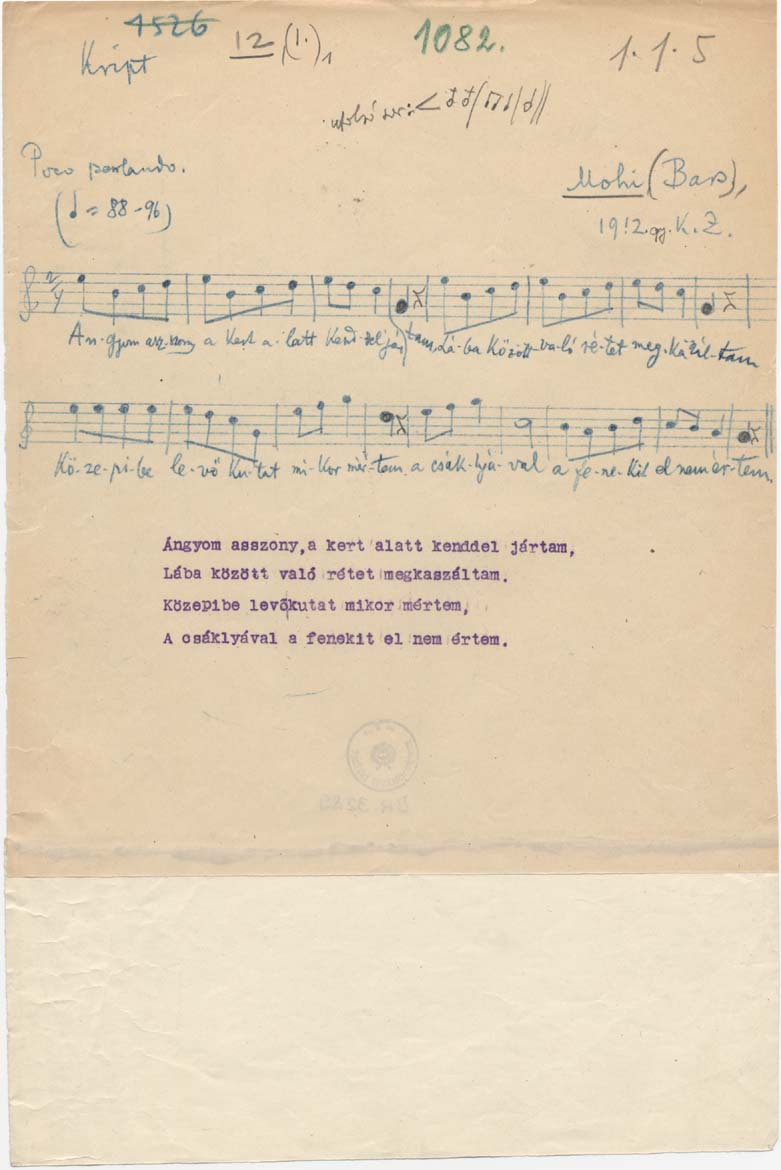 4526
Kript
12 (1.)1
1082.
1. 1. 5
utolsó sor:
Poco parlando.
(♩ = 88-96)
Mohi (Bars),
1912. gy. K. Z.
2/4
Án-gyom asz-szony a kert a-latt kend-del jár-tam, Lá-ba között-va-ló ré-tet meg-ka-szál-tam
Kö-ze-pi-be le-vő ku-tat mi-kor mér-tem a csák-lyá-val a fe-ne-kit el nem ér-tem
Ángyom asszony,a kert alatt kenddel jártam,
Lába között való rétet megkaszáltam.
Közepibe levő|kutat mikor mértem,
A csáklyával a fenekit el nem értem.